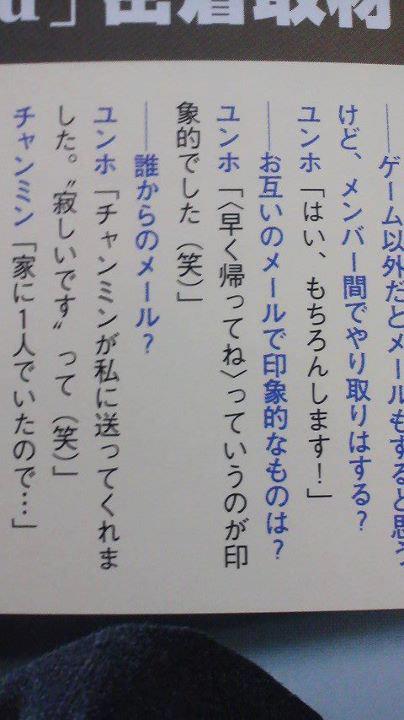 」密着取材
──ゲーム以外だとメールもすると思う
けど、メンバー間でやり取りはする？
ユンホ「はい、もちろんします！」
──お互いのメールで印象的なものは？
ユンホ「〈早く帰ってね〉っていうのが印
象的でした（笑）」
──誰からのメール？
ユンホ「チャンミンが私に送ってくれま
した。〝寂しいです〟って（笑）」
チャンミン「家に1人でいたので…」